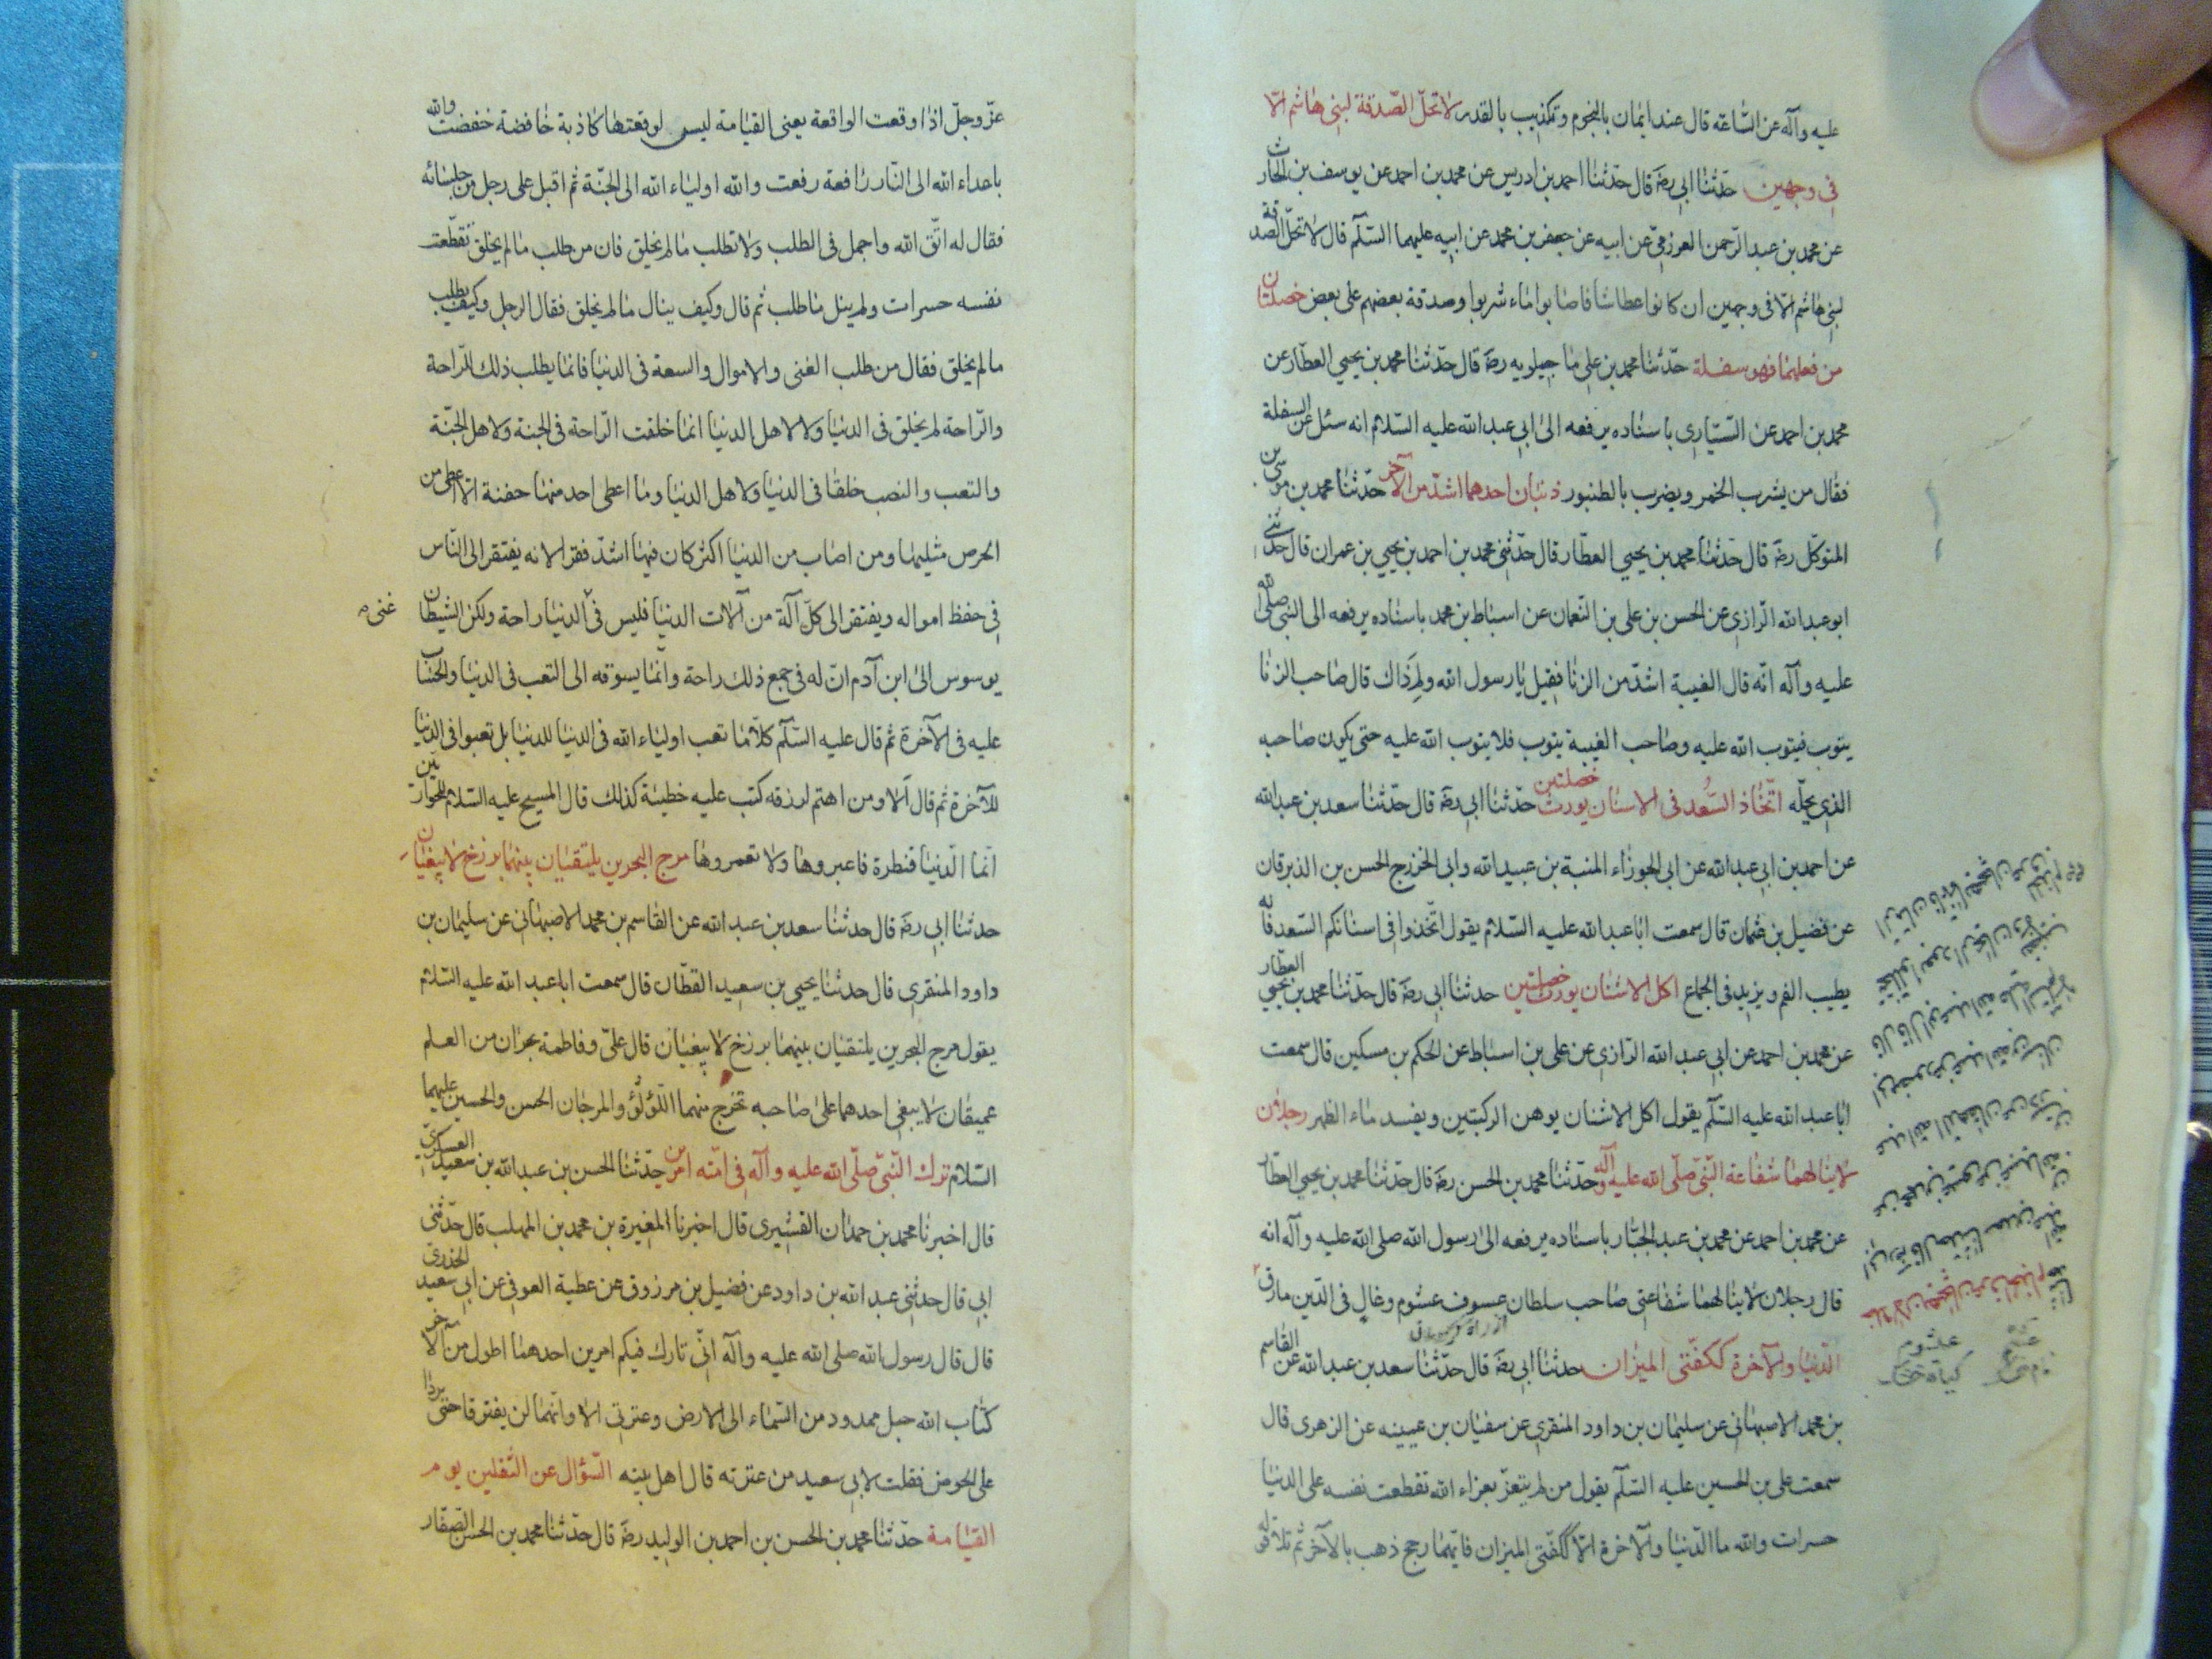 عليه وآله عن الساعة قال عند ايمان بالنجوم وتكذيب بالقدر لا تحلّ الصّدقة لبنى هاشم الّا
فى وجهين حدّثنا ابى رضه قال حدّثنا احمد بن ادريس عن محمد بن احمد عن يوسف بن الحارث
عن محمد بن عبد الرّحمن العرزمىّ عن ابيه عن جعفر بن محمد عن ابيه عليهما السّلم قال لا تحلّ الصّدقة
لبنى هاشم الّا فى وجهين ان كانوا عطاشا فاصابوا ماء شربوا وصدقة بعضهم على بعض خصلتان
من فعلهما فهو سفلة حدّثنا محمد بن على ماجيلويه رضه قال حدّثنا محمد بن يحيى العطّار عن
محمد بن احمد عن السّيّارى باسناده يرفعه الى ابى عبد الله عليه السّلام انه سئل عن السفلة
فقال من يشرب الخمر ويضرب بالطنبور ذنبان احدهما اشدّ من الآخر حدّثنا محمد بن موسى بن
المتوكّل رضه قال حدّثنا محمد بن يحيى العطّار قال حدّثنى محمد بن احمد بن يحيى بن عمران قال حدّثنى
ابو عبد الله الرّازى عن الحسن بن على بن النّعمان عن اسباط بن محمد باسناده يرفعه الى النبى صلى الله
عليه وآله انّه قال الغيبة اشدّ من الزنا فقيل يا رسول الله ولِمَ ذَاك قال صاحب الزنا
يتوب فيتوب الله عليه وصاحب الغيبة يتوب فلا يتوب الله عليه حتى يكون صاحبه
الذى يحلّه اتّخاذ السُّعد فى الاسنان يورث خصلتين حدّثنا ابى رضه قال حدّثنا سعد بن عبد الله
عن احمد بن ابى عبد الله عن ابى الجوزاء المنبة بن عبيد الله وابى الخزرج الحسن بن الذبرقان
عن فضيل بن عثمان قال سمعت ابا عبد الله عليه السّلام يقول اتّخذوا فى اسنانكم السّعد فانه
يطيب الفم ويزيد فى الجماع اكل الاشنان يورث خصلتين حدثنا ابى رضه قال حدّثنا محمد بن يحيى العطّار
عن محمد بن احمد عن ابى عبد الله الرّازى عن على بن اسباط عن الحكم بن مسكين قال سمعت
ابا عبد الله عليه السّلم يقول اكل الاشنان يوهن الركبتين ويفسد ماء الظهر رجلان
لا ينالهما شفاعة النّبىّ صلّى الله عليه وآله حدّثنا محمد بن الحسن رضه قال حدّثنا محمد بن يحيى العطار
عن محمد بن احمد عن محمد بن عبد الجبّار باسناده يرفعه الى رسول الله صلى الله عليه وآله انه
قال رجلان لا ينالهما شفاعتى صاحب سلطان عسوف غشوم وغالٍ فى الدّين مارق
الدّنيا والآخرة ككفّتى الميزان حدثنا ابى رضه قال حدّثنا سعد بن عبد الله عن القاسم
بن محمد الاصبهانى عن سليمان بن داود المنقرى عن سفيان بن عيينه عن الزهرى قال
سمعت على بن الحسين عليه السّلم يقول من لم يتعزّ بعزاء الله تقطعت نفسه على الدنيا
حسرات والله ما الدّنيا والآخرة الّا ككفّتى الميزان فايّهما رجح ذهب بالآخر ثم تلا قوله
عزّ وجلّ اذا وقعت الواقعة يعنى القيامة ليس لوقعتها كاذبة خافضة خفضت والله
باعداء الله الى النّار رافعة رفعت والله اولياء الله الى الجنّة ثم اقبل على رجل من جلسائه
فقال له اتّق الله واجمل فى الطلب ولا تطلب ما لم يخلق فان من طلب ما لم يخلق تقطّعت
نفسه حسرات ولم ينل ما طلب ثم قال وكيف ينال ما لم يخلق فقال الرجل وكيف يطلب
ما لم يخلق فقال من طلب الغنى والاموال والسعة فى الدنيا فانما يطلب ذلك للرّاحة
والرّاحة لم يخلق فى الدنيا ولا لاهل الدنيا انما خلقت الرّاحة فى الجنة ولاهل الجنّة
والتعب والنصب خلقا فى الدنيا ولاهل الدنيا وما اعطى احد منها حفنة الّا اعطى من
الحرص مثليها ومن اصاب من الدنيا اكثر كان فيها اشدّ فقرا لانه يفتقر الى الناس
فى حفظ امواله ويفتقر الى كلّ آلة من آلات الدنيا فليس فى الدنيا راحة ولكن الشيطان
غنى
يوسوس الى ابن آدم انّ له فى جمع ذلك راحة وانّما يسوقه الى التعب فى الدنيا والحساب
عليه فى الآخرة ثم قال عليه السّلم كلّا ما تعب اولياء الله فى الدنيا للدنيا بل تعبوا فى الدنيا
للآخرة ثم قال الا ومن اهتم لرزقه كتب عليه خطيئة كذلك قال المسيح عليه السّلام للحواريين
انّما الدّنيا قنطرة فاعبروها ولا تعمروها مرج البحرين يلتقيان بينهما برزخ لا يبغيان
حدثنا ابى رضه قال حدثنا سعد بن عبد الله عن القاسم بن محمد الاصبهانى عن سليمان بن
داود المنقرى قال حدثنا يحيى بن سعيد القطّان قال سمعت ابا عبد الله عليه السّلام
يقول مرج البحرين يلتقيان بينهما برزخ لا يبغيان قال علىّ وفاطمة بحران من العلم
عميقان لا يبغى احدهما على صاحبه تخرج منهما اللّؤلُؤ والمرجان الحسن والحسين عليهما
السّلام ترك النّبىّ صلّى الله عليه وآله فى امّته امرين حدّثنا الحسن بن عبد الله بن سعيد العسكرىّ
قال اخبرنا محمد بن حمدان القشيرى قال اخبرنا المغيرة بن محمد بن المهلب قال حدّثنى
ابى قال حدثنى عبد الله بن داود عن فضيل بن مرزوق عن عطية العوفى عن ابى سعيد الخدرى
قال قال رسول الله صلى الله عليه وآله انّى تارك فيكم امرين احدهما اطول من الآخر
كتاب الله حبل ممدود من السّماء الى الارض وعترتى الا وانّهما لن يفترقا حتى يردا
على الحوض فقلت لابى سعيد من عترته قال اهل بيته السّؤال عن الثّقلين يوم
القيامة حدّثنا محمد بن الحسن بن احمد بن الوليد رضه قال حدّثنا محمد بن الحسن الصفّار